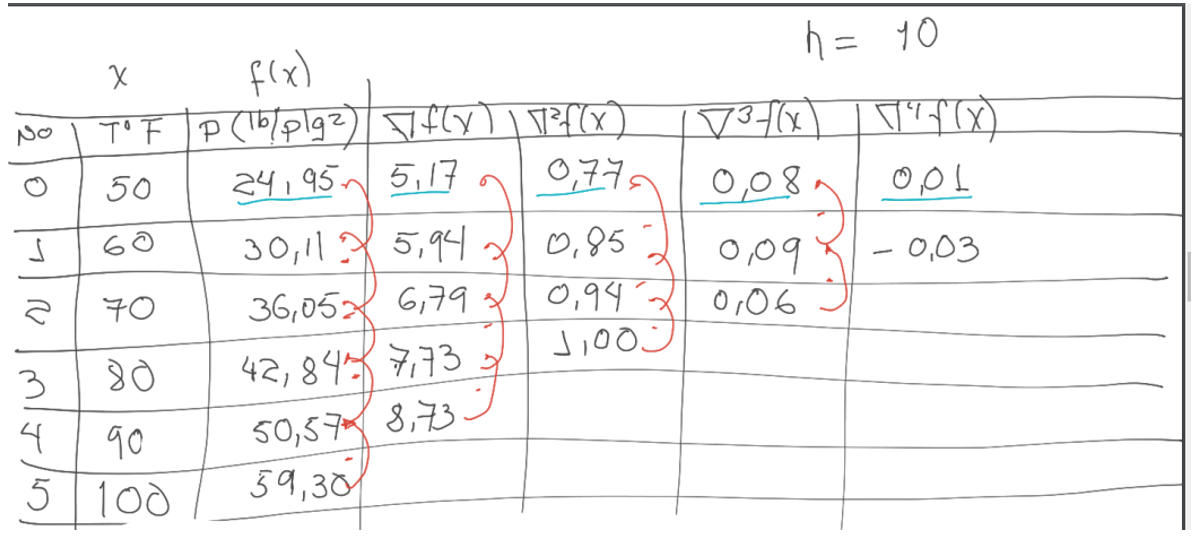 h = 10
x f(x)
No T°F P (lb/plg²) ∇f(x) ∇²f(x) ∇³f(x) ∇⁴f(x)
0 50 24,95 5,17 0,77 0,08 0,01
1 60 30,11 5,94 0,85 0,09 - 0,03
2 70 36,05 6,79 0,94 0,06
3 80 42,84 7,73 1,00
4 90 50,57 8,73
5 100 59,30